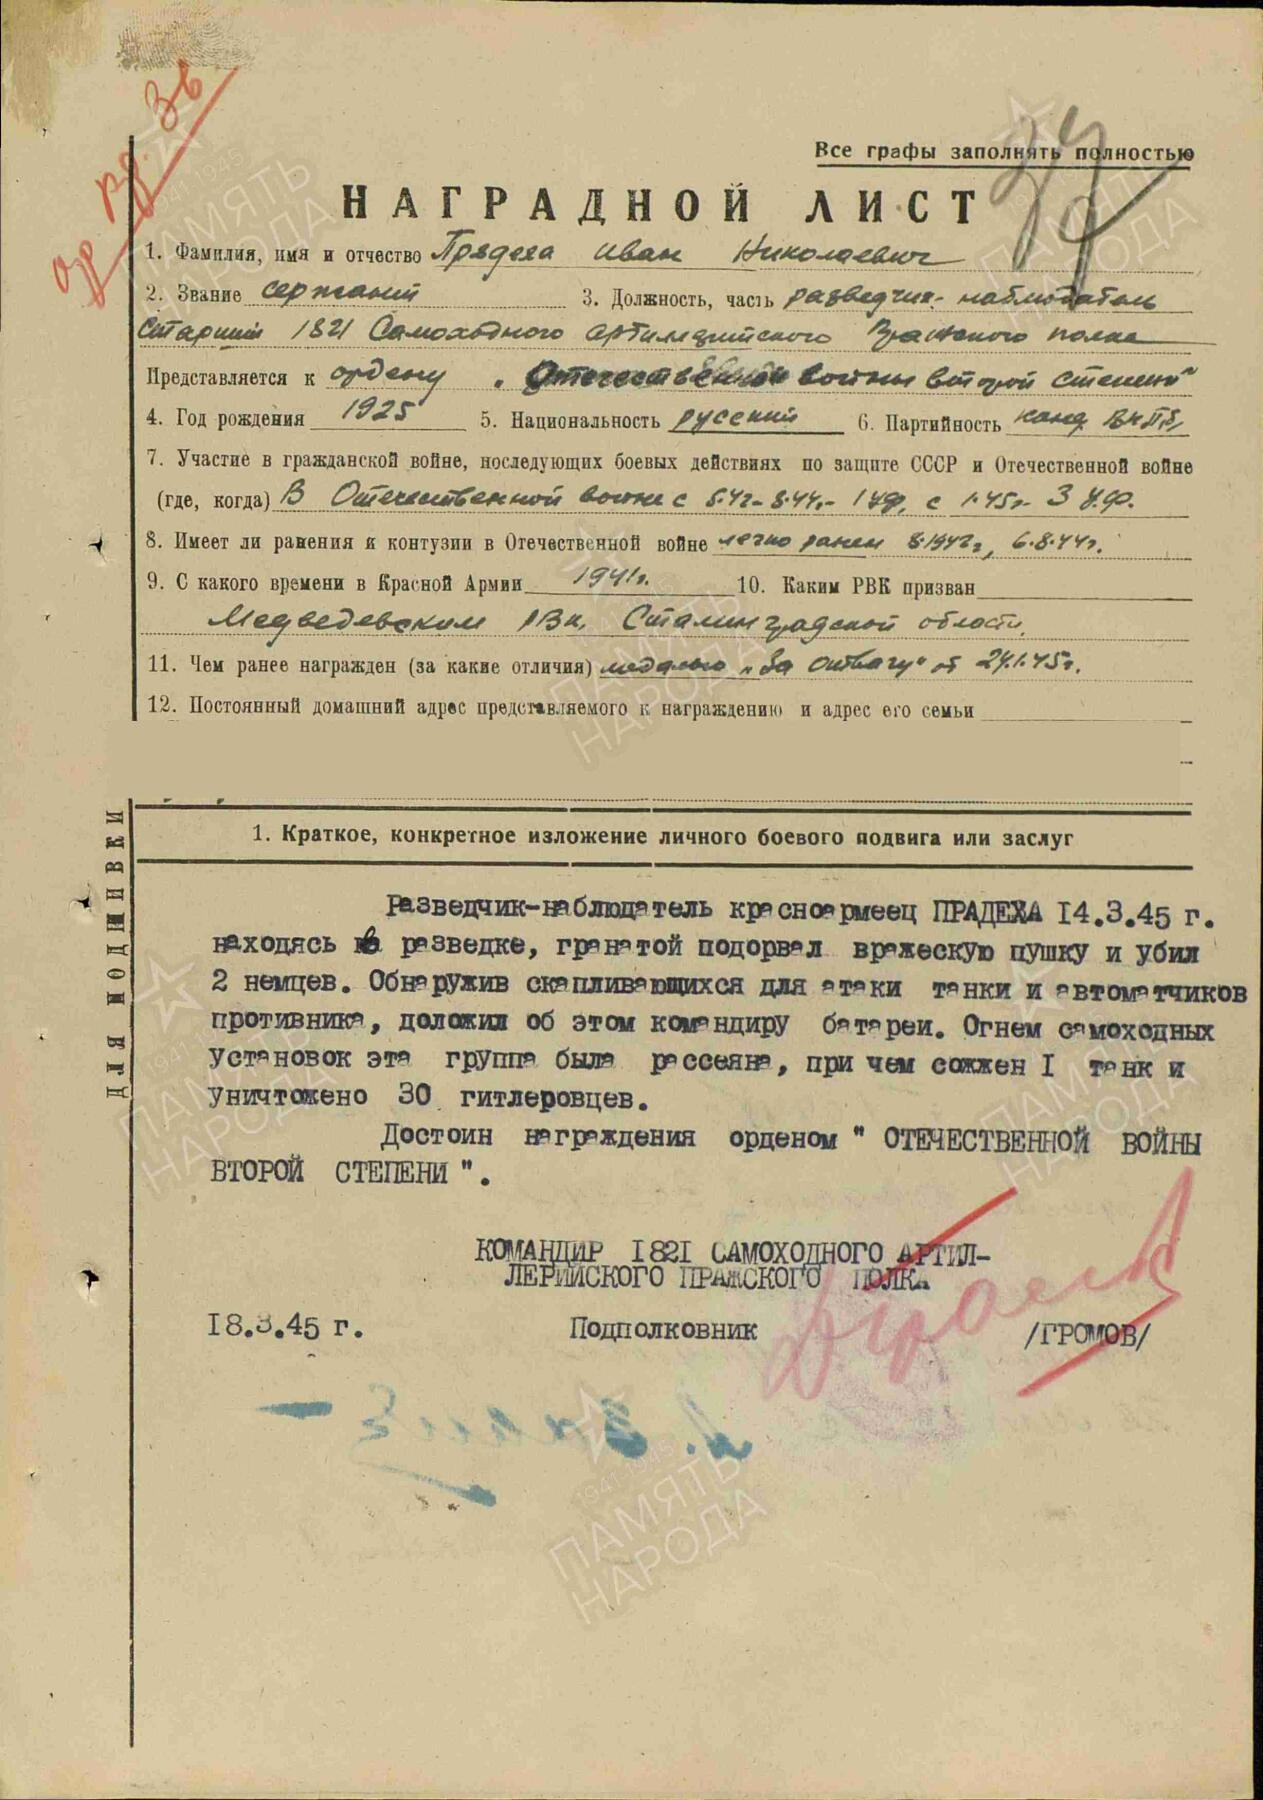 ор. кр. Зв
Все графы заполнять полностью
НАГРАДНОЙ ЛИСТ
1. Фамилия, имя и отчество Прадеха Иван Николаевич
2. Звание сержант 3. Должность, часть разведчик-наблюдатель
старший 1821 Самоходного артиллерийского Пражского полка
Представляется к ордену „Отечественной войны второй степени"
4. Год рождения 1925 5. Национальность русский 6. Партийность канд. ВКПб,
7. Участие в гражданской войне, последующих боевых действиях по защите СССР и Отечественной войне
(где, когда) В Отечественной войне с 5.42- 8.44.- 1 уф, с 1.45г. 3 у.ф.
8. Имеет ли ранения и контузии в Отечественной войне легко ранен 8.1942г, 6.8.44г.
9. С какого времени в Красной Армии 1941г. 10. Каким РВК призван
Медведевским РВК, Сталинградской области,
11. Чем ранее награжден (за какие отличия) медалью „За отвагу" от 24.1.45г.
12. Постоянный домашний адрес представляемого к награждению и адрес его семьи
ДЛЯ ПОДШИВКИ
1. Краткое, конкретное изложение личного боевого подвига или заслуг
Разведчик-наблюдатель красноармеец ПРАДЕХА 14.3.45 г.
находясь в разведке, гранатой подорвал вражескую пушку и убил
2 немцев. Обнаружив скапливающихся для атаки танки и автоматчиков
противника, доложил об этом командиру батареи. Огнем самоходных
установок эта группа была рассеяна, при чем сожжен I танк и
уничтожено 30 гитлеровцев.
Достоин награждения орденом " ОТЕЧЕСТВЕННОЙ ВОЙНЫ
ВТОРОЙ СТЕПЕНИ ".
КОМАНДИР I82I САМОХОДНОГО АРТИЛ-
ЛЕРИЙСКОГО ПРАЖСКОГО ПОЛКА
I8.3.45 г. Подполковник /ГРОМОВ/
1941-1945
ПАМЯТЬ
НАРОДА